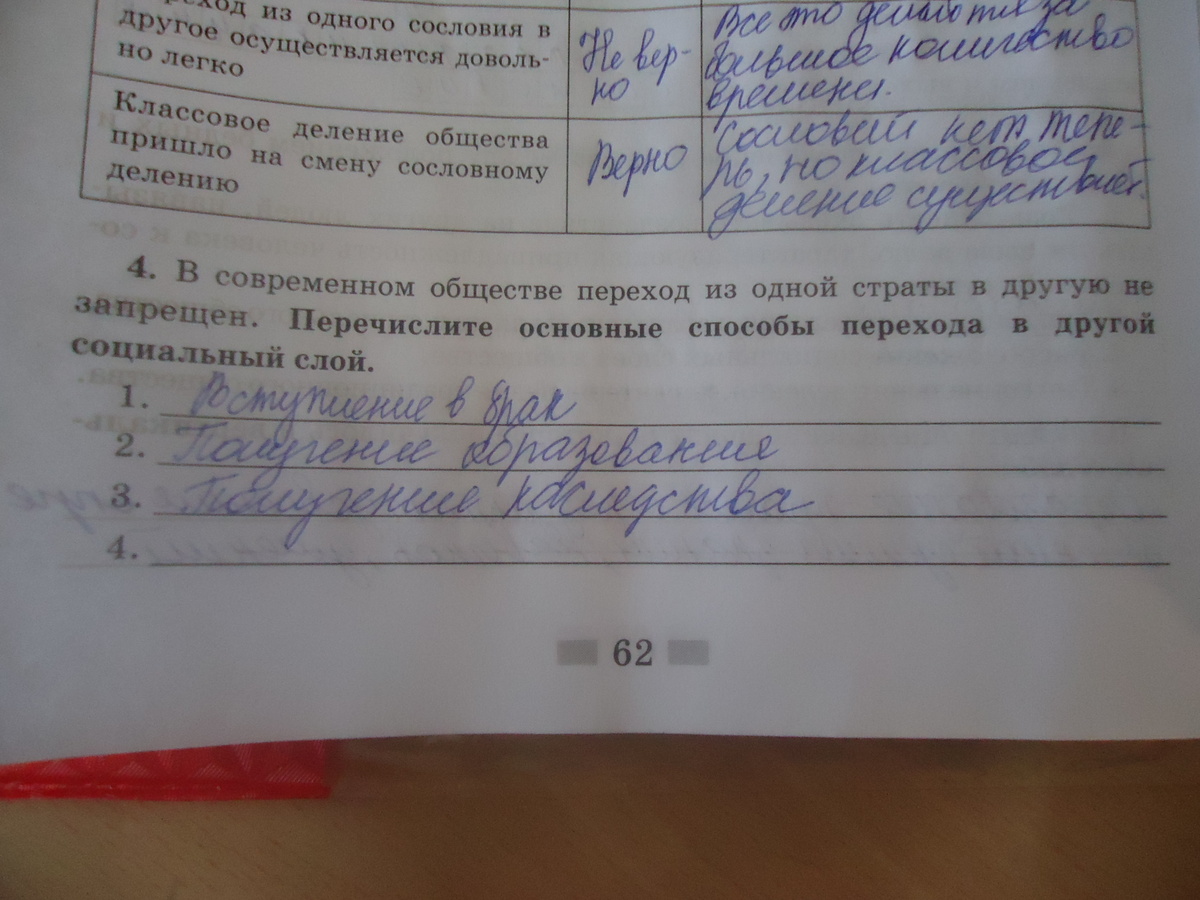 ход из одного сословия в
другое осуществляется доволь-
но легко
Не вер-
но
Все это делается за
большое количество
времени.
Классовое деление общества
пришло на смену сословному
делению
Верно
Сословий нет тепе-
рь, но классовое
деление существует.
4. В современном обществе переход из одной страты в другую не
запрещен. Перечислите основные способы перехода в другой
социальный слой.
1. Вступление в брак
2. Получение образования
3. Получение наследства
4.
62